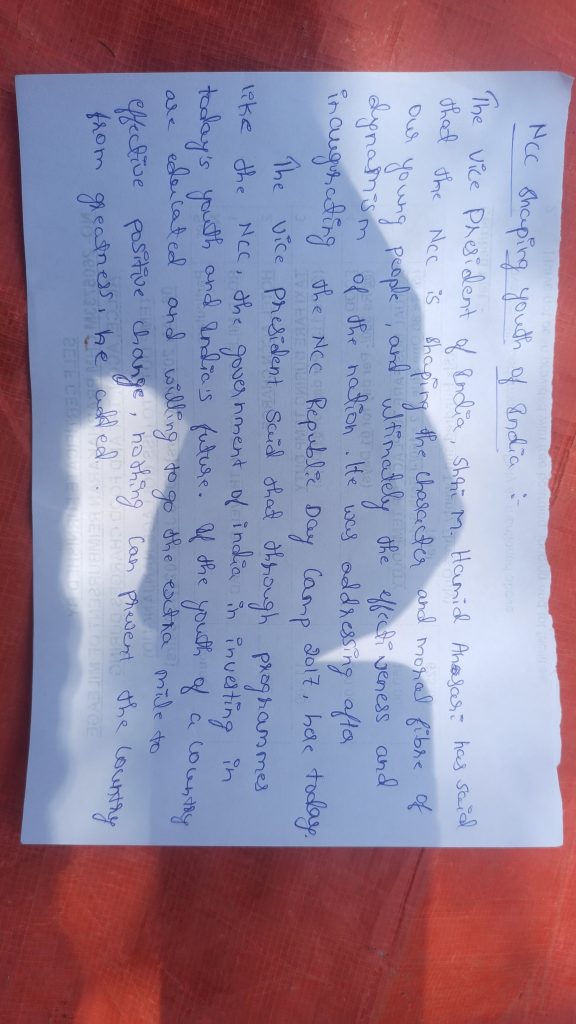 Ncc shaping youth of India :-
The vice president of India, Shri M. Hamid Anasari has said
that the Ncc is shaping the character and moral fibre of
our young people, and ultimately the effectiveness and
dynamism of the nation. He was addressing after
inaugurating the Ncc Republic Day Camp 2017, here today.
The vice president said that through programmes
like the Ncc, the government of india in investing in
today's youth and India's future. If the youth of a country
are educated and willing to go the extra mile to
effective positive change, nothing can prevent the country
from greatness, he added.